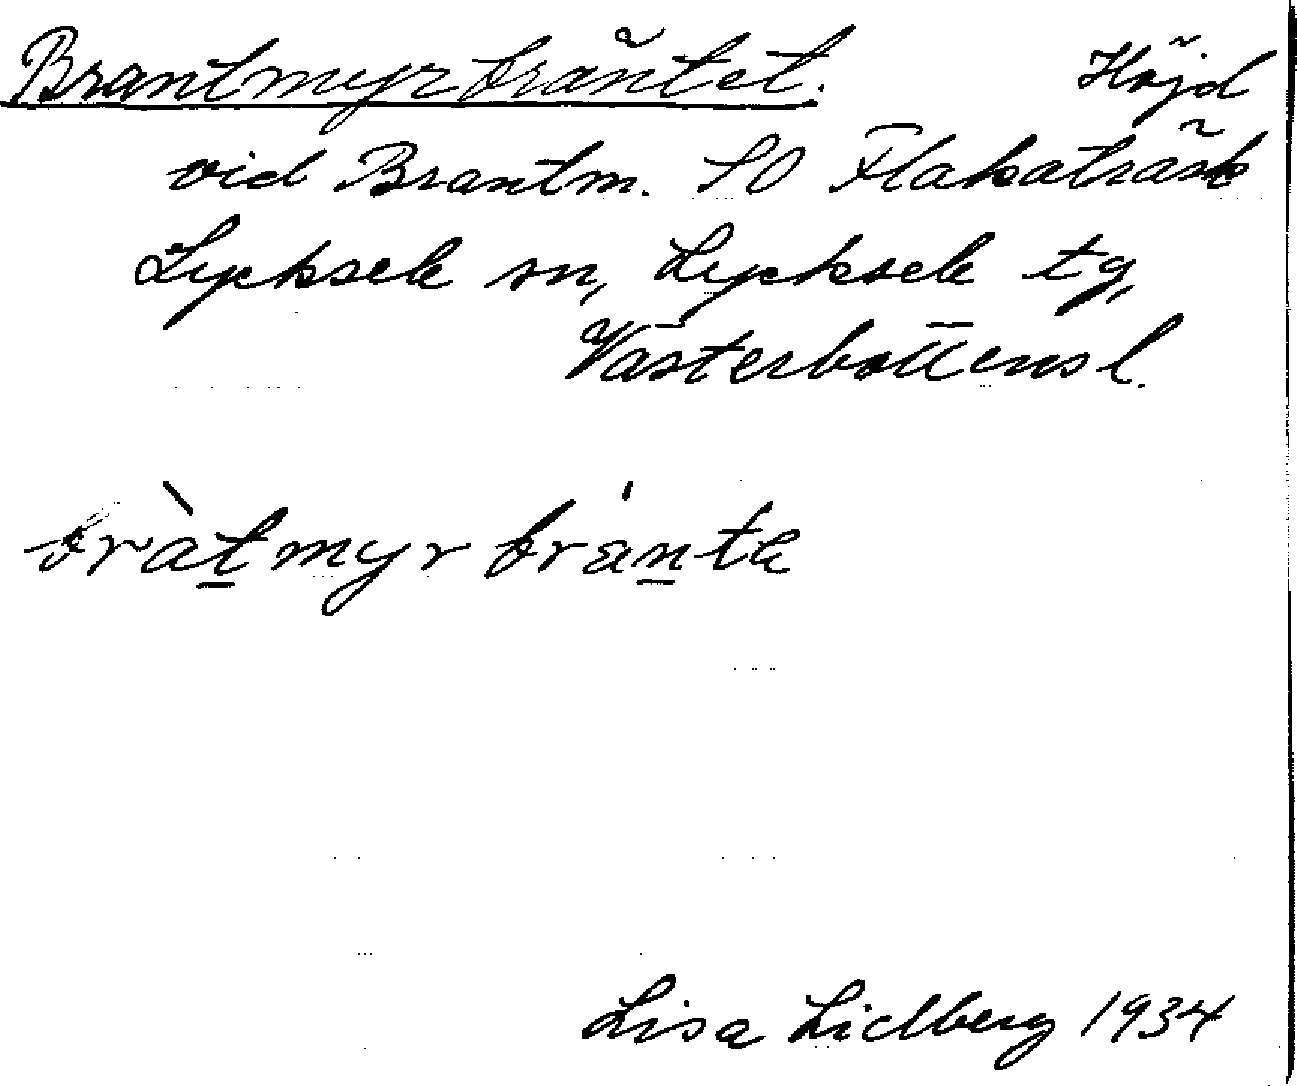 Brantmyrbräntet. Höjd
vid Brantm. SO Flakaträsk
Lycksele sn, Lycksele tg,
Västerbottens l.
bràt̲myrbrán̲tɐ
Lisa Lidberg 1934